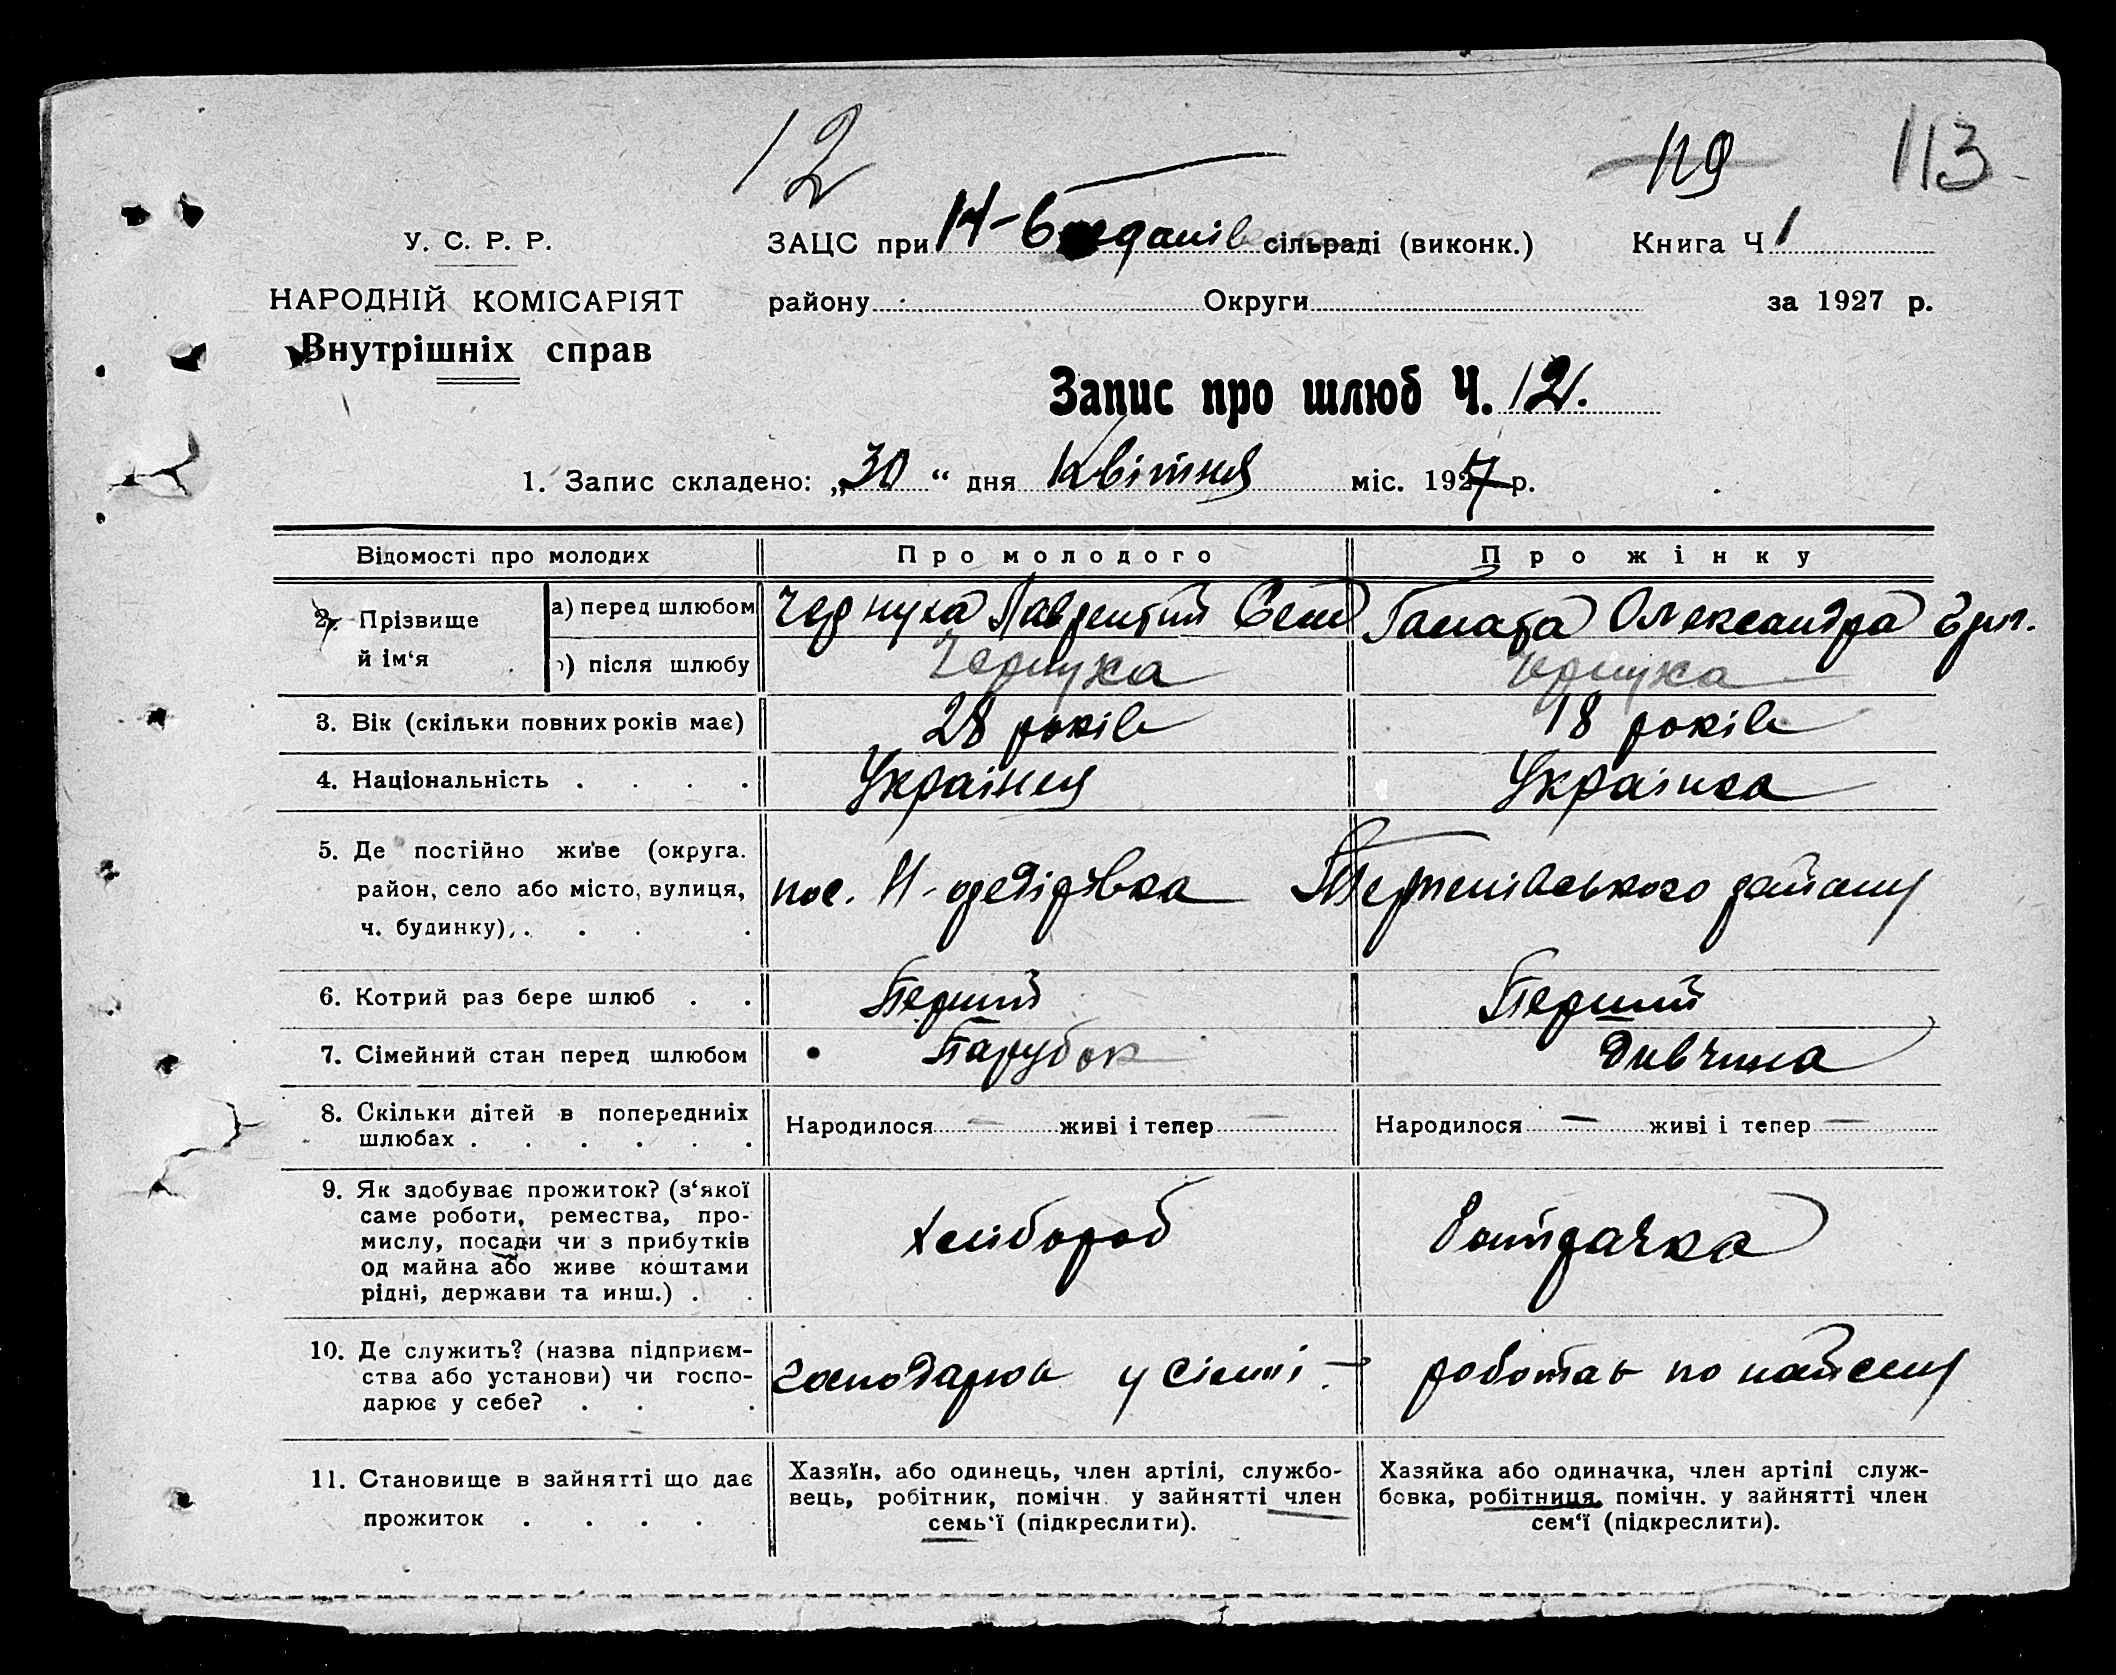 12
119
113
У. С. Р. Р.
НАРОДНІЙ КОМІСАРІЯТ
Внутрішніх справ
ЗАЦС при Н-Богданів сільраді (виконк.) Книга Ч 1
району Округи за 1927 р.
Запис про шлюб Ч. 12.
1. Запис складено: „30“ дня Квітня міс. 1927 р.
Відомості про молодих Про молодого Про жінку
2. Прізвище й ім‘я
а) перед шлюбом Чернуха Лаврентий Сем Олександра
б) після шлюбу Чернуха Чернуха
3. Вік (скільки повних років має) 28 років 18 років
4. Національність . . . . Українец Українка
5. Де постійно живе (округа.
район, село або місто, вулиця,
ч. будинку), . . . .
пос. Тернівського району
6. Котрий раз бере шлюб . . Перший Перший
7. Сімейний стан перед шлюбом Парубок Дивчина
8. Скільки дітей в попередниіх
шлюбах . . . . . .
Народилося — живі і тепер — Народилося — живі і тепер —
9. Як здобуває прожиток? (з‘якої
саме роботи, ремества, про-
мислу, посади чи з прибутків
од майна або живе коштами
рідні, держави та инш.) . .
Хлібороб
10. Де служить? (назва підприєм-
ства або установи) чи госпо-
дарює у себе? . . .
господарює у сімї — работає по найому
11. Становище в зайнятті що дає
прожиток . . . . .
Хазяїн, або одинець, член артілі, службо-
вець, робітник, помічн. у зайнятті член
семь‘ї (підкреслити).
Хазяйка або одиначка, член артілі служ-
бовка, робітниця, помічн. у зайнятті член
сем‘ї (підкреслити).